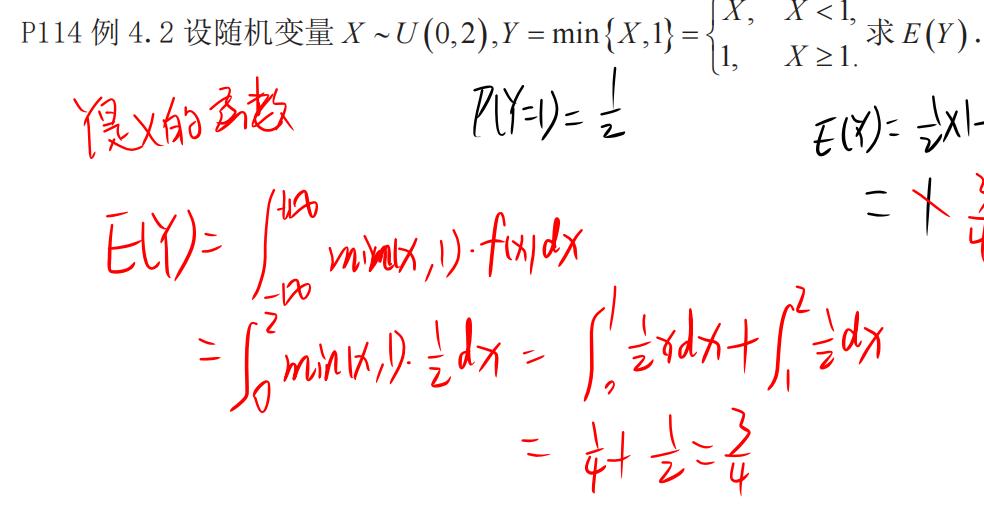 P114 例 4.2 设随机变量 X ~ U(0,2), Y = min{X,1} = { X, X < 1, 1, X ≥ 1. 求 E(Y).
得X的函数
P(Y=1) = 1/2
E(Y) = 1/2×1-
= 1 3/4
E(Y) = ∫_{-∞}^{+∞} min(x,1)·f(x)dx
= ∫_0^2 min(x,1)·1/2 dx = ∫_0^1 1/2 x dx + ∫_1^2 1/2 dx
= 1/4 + 1/2 = 3/4